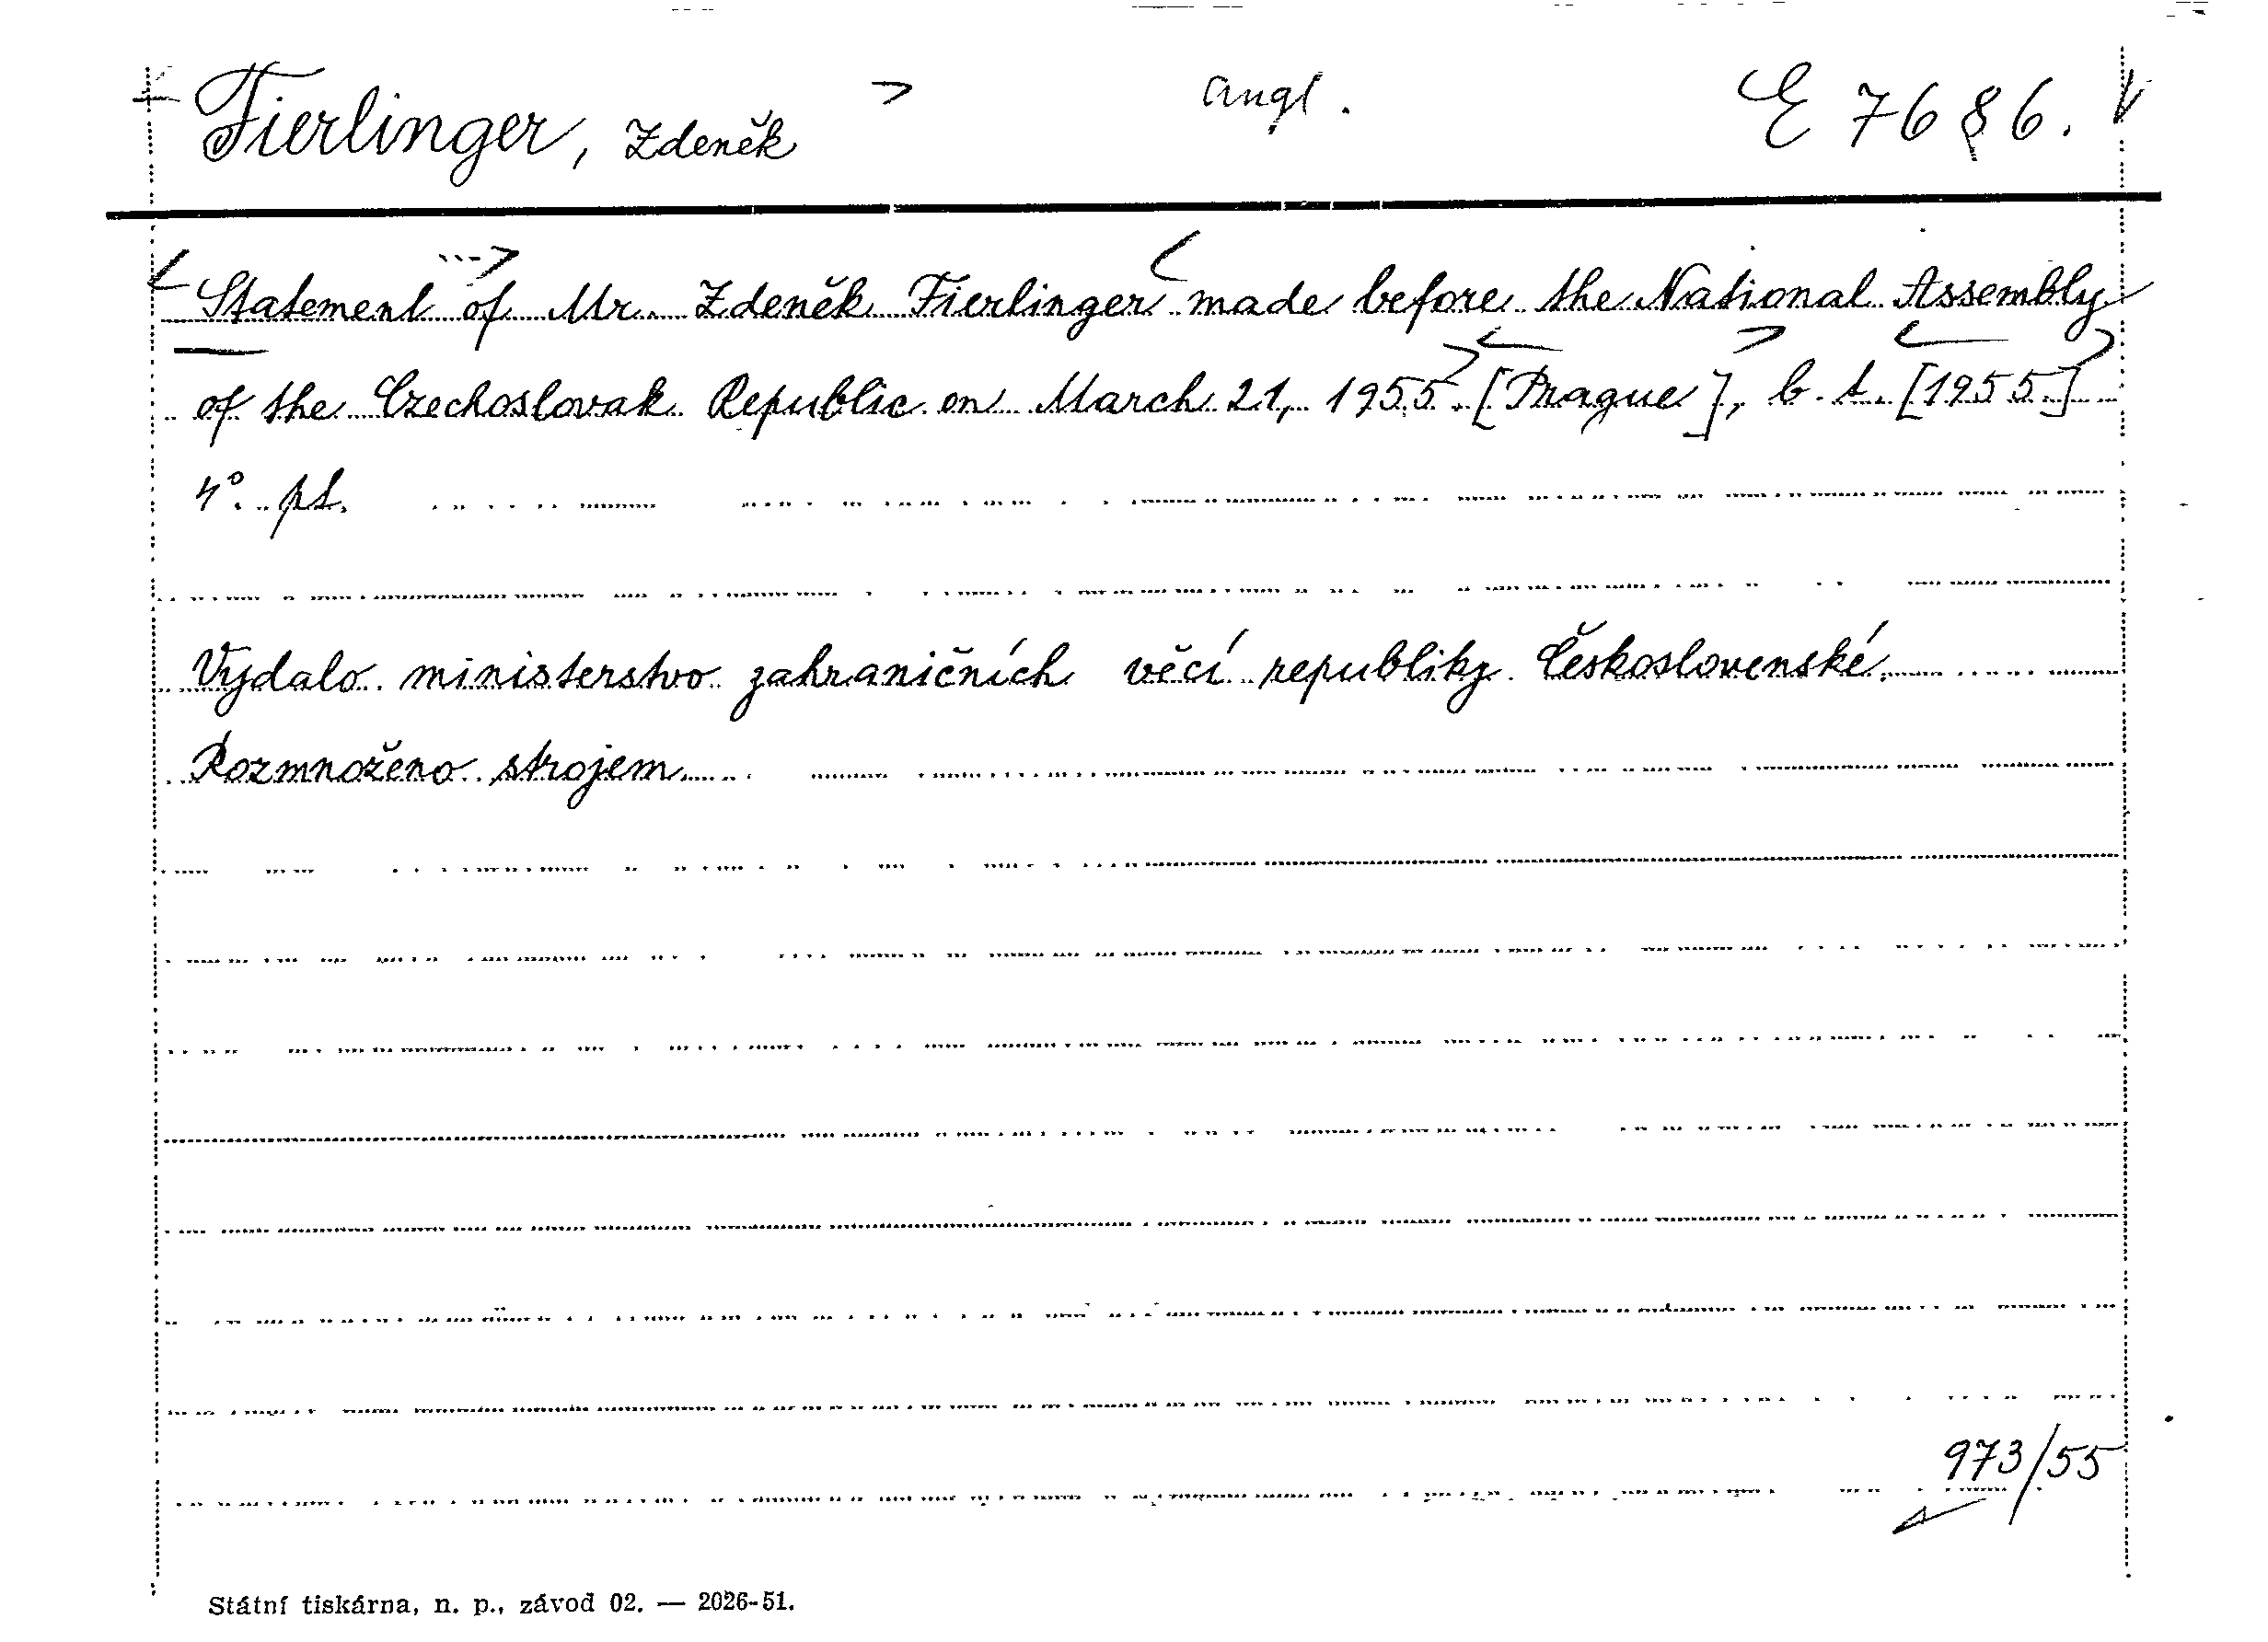 Fierlinger, Zdeněk angl. E 7686.
Statement of Mr. Zdeněk Fierlinger made before the National Assembly
of the Czechoslovak Republic on March 21, 1955. [Prague], b. t. [1955]
4°. pt.
Vydalo ministerstvo zahraničních věcí republiky Československé.
Rozmnoženo strojem
973/55
Státní tiskárna, n. p., závod 02. — 2026-51.